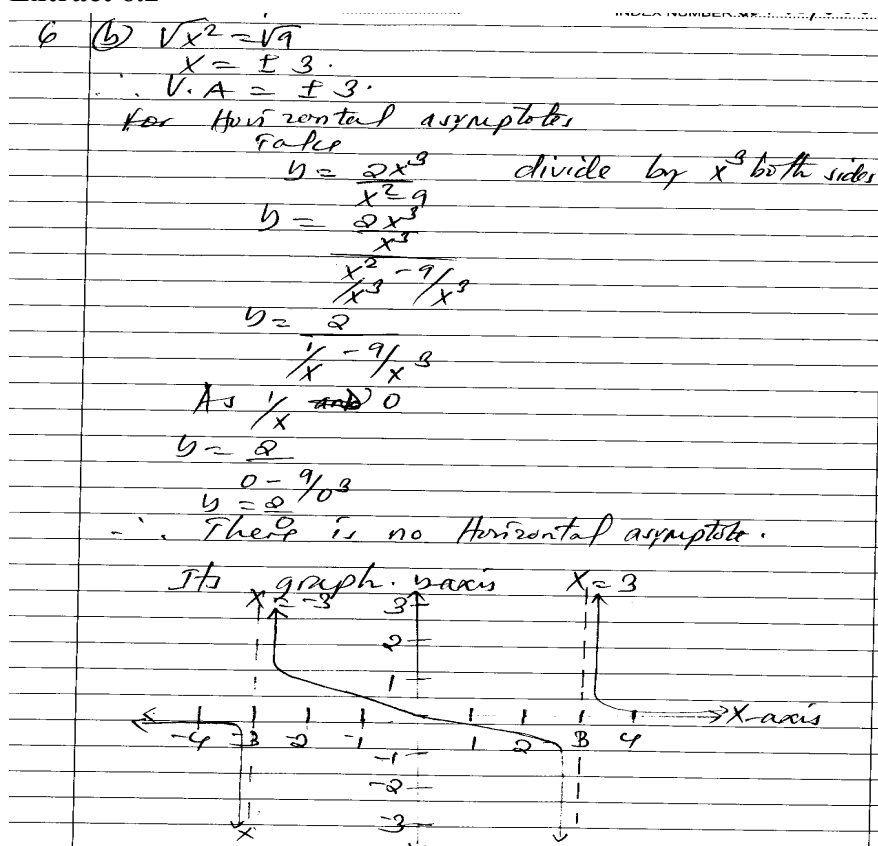 6 (b) √x² = √9
x = ± 3.
∴ V.A = ± 3.
For Horizontal asymptotes
Take
y = 2x³ / x² - 9 divide by x³ both sides
y = 2x³/x³ / x²/x³ - 9/x³
y = 2 / 1/x - 9/x³
As 1/x 0
y = 2 / 0 - 9/0³
y = 2/0
∴ There is no Horizontal asymptote.
Its graph. y axis X = 3
X = -3 3
2
1
X-axis
-4 -3 -2 -1 1 2 3 4
-1
-2
-3